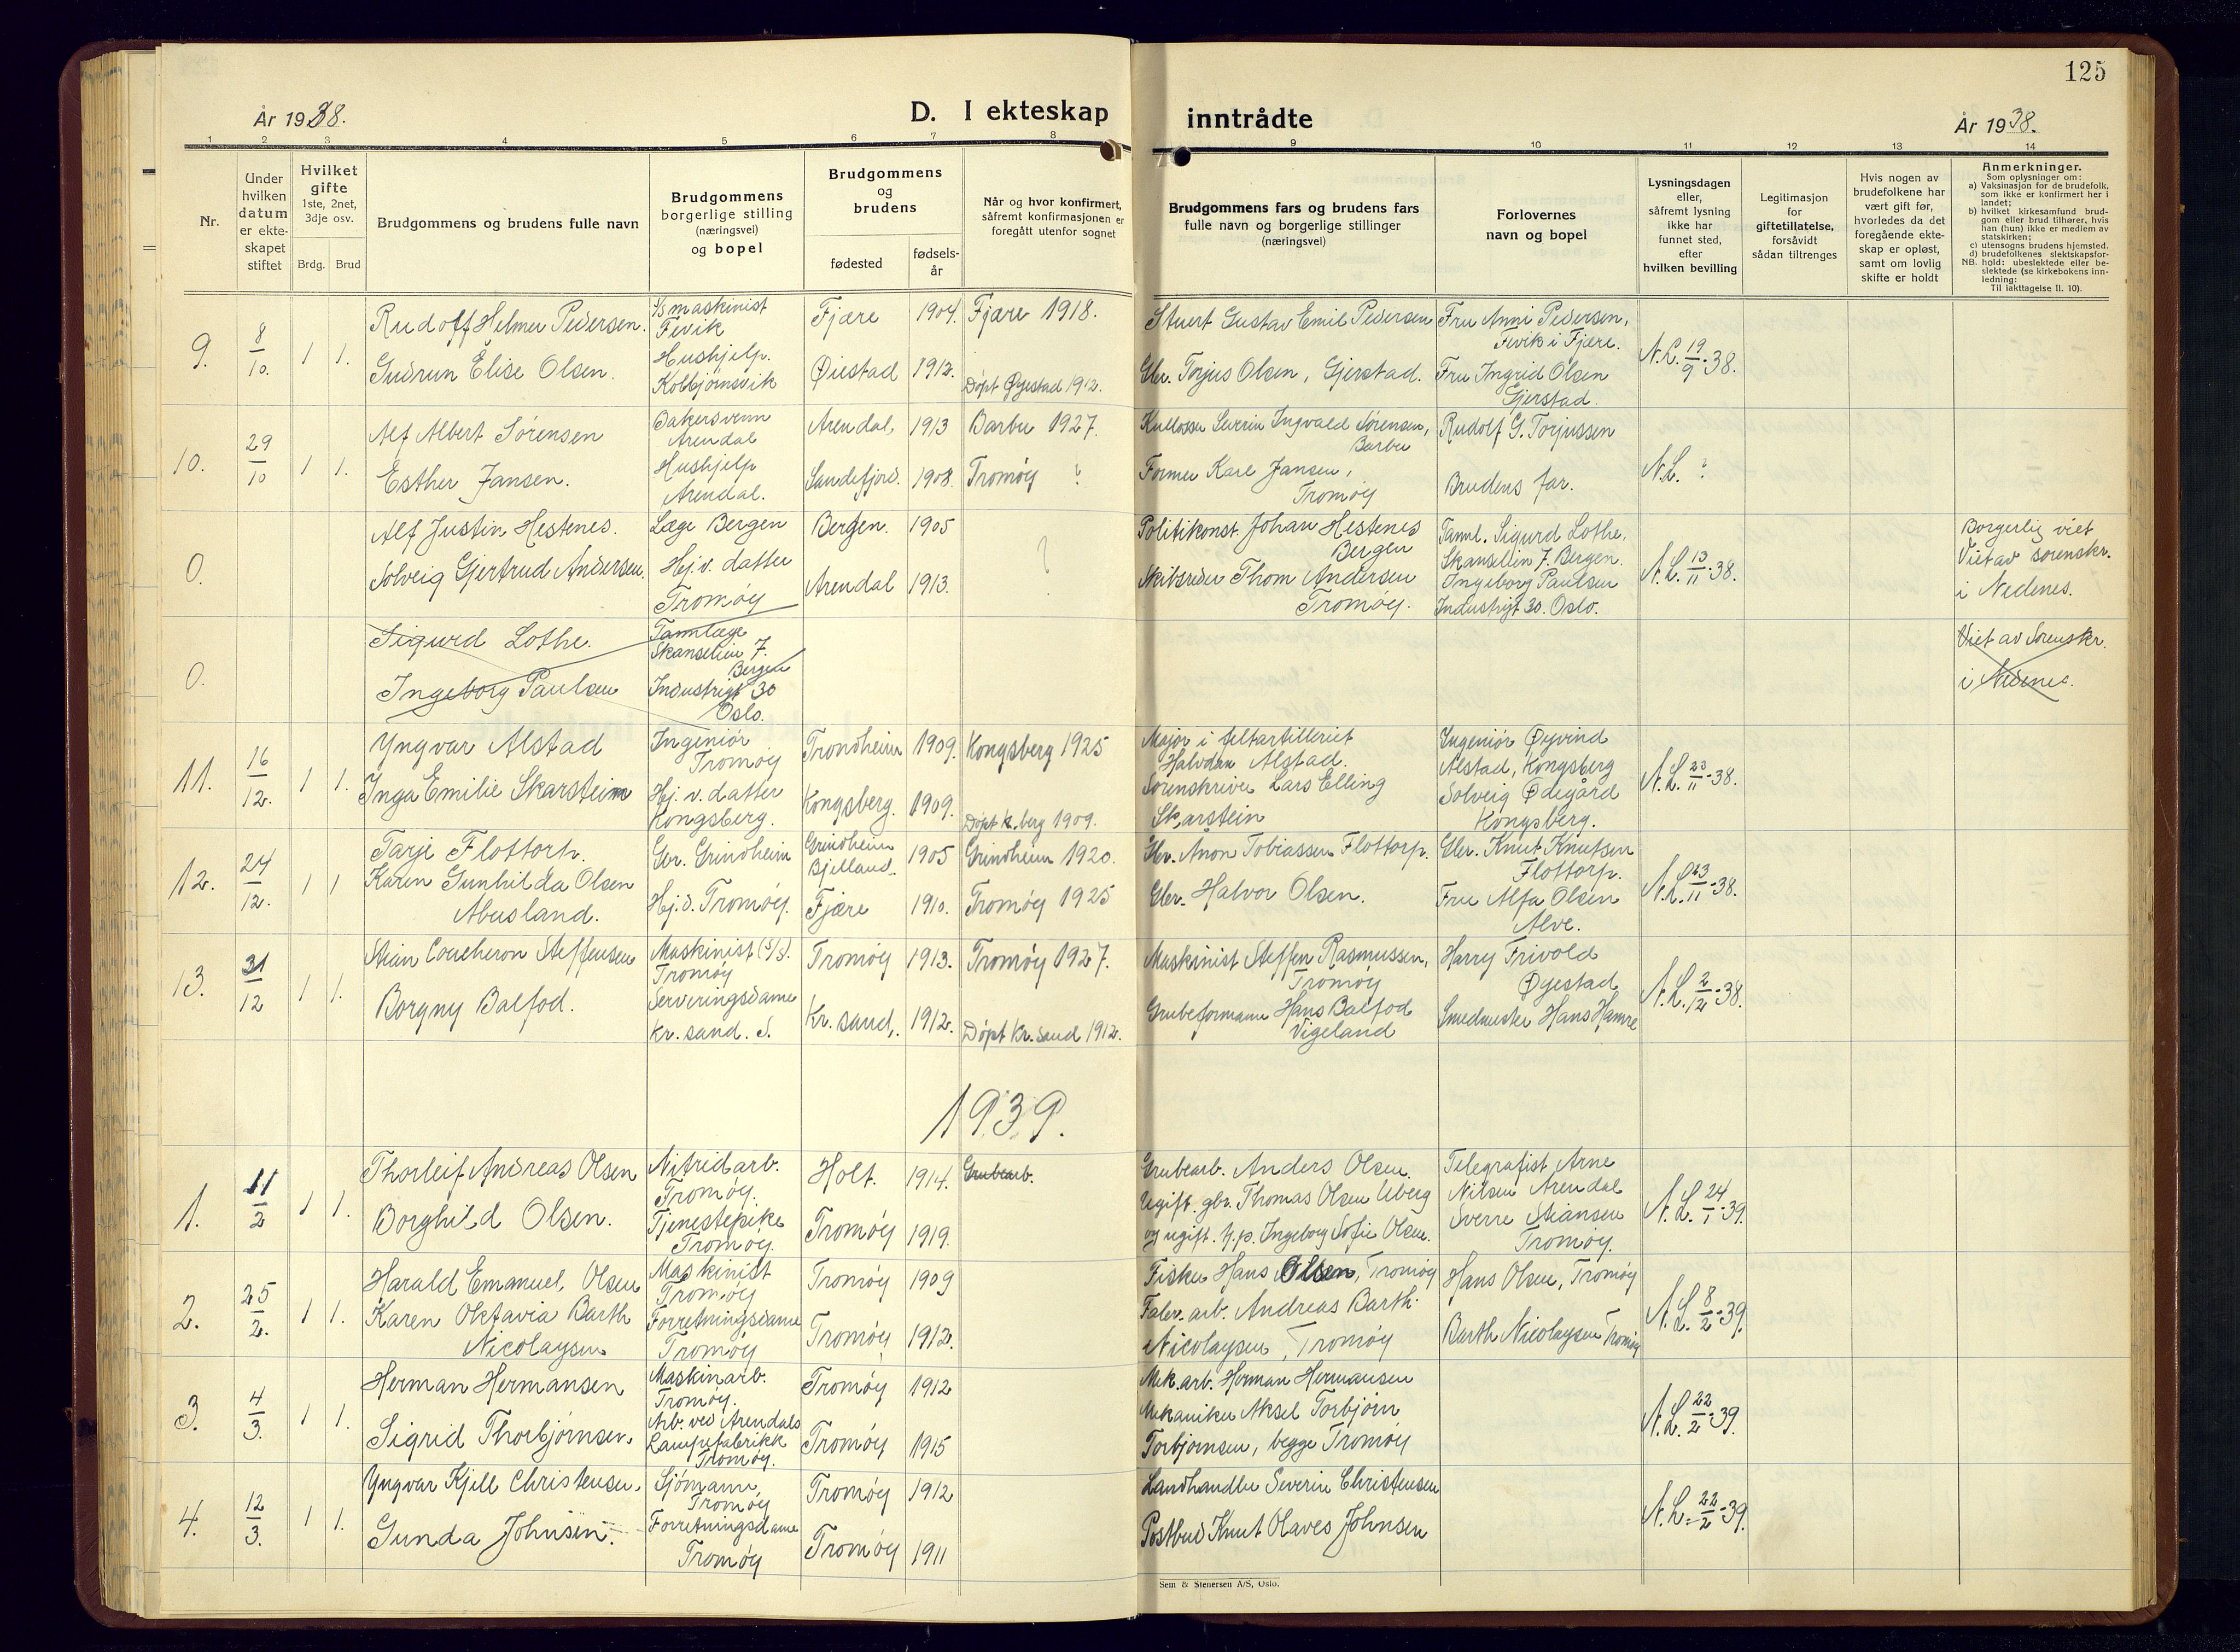 125
År 1938.
D. I ekteskap inntrådte
År 1938.
1 2 3 4 5 6 7 8 9 10 11 12 13 14
Nr.
Under
hvilken
datum
er ekte-
skapet
stiftet
Hvilket
gifte
1ste, 2net,
3dje osv.
Brdg. Brud
Brudgommens og brudens fulle navn
Brudgommens
borgerlige stilling
(næringsvei)
og bopel
Brudgommens
og
brudens
fødested
fødsels-
år
Når og hvor konfirmert,
såfremt konfirmasjonen er
foregått utenfor sognet
Brudgommens fars og brudens fars
fulle navn og borgerlige stillinger
(næringsvei)
Forlovernes
navn og bopel
Lysningsdagen
eller,
såfremt lysning
ikke har
funnet sted,
efter
hvilken bevilling
Legitimasjon
for
giftetillatelse,
forsåvidt
sådan tiltrenges
Hvis nogen av
brudefolkene har
vært gift før,
hvorledes da det
foregående ekte-
skap er opløst,
samt om lovlig
skifte er holdt
Anmerkninger.
Som oplysninger om:
a) Vaksinasjon for de brudefolk,
som ikke er konfirmert her i
landet;
b) hvilket kirkesamfund brud-
gom eller brud tilhører, hvis
han (hun) ikke er medlem av
statskirken;
c) utensogns brudens hjemsted.
d) brudefolkenes slektskapsfor-
NB. hold: ubeslektede eller be-
slektede (se kirkebokens inn-
ledning:
Til iakttagelse II. 10).
9. 8/10. 1 1.
Rudolf Helmer Pedersen.
Gudrun Elise Olsen.
maskinist
Fevik
Hushjelp.
Kolbjørnsvik
Fjære 1904. Fjære 1918.
Øiestad 1912. Døpt Øyestad 1912.
Stuert Gustav Emil Pedersen
Gbr. Torjus Olsen, Gjerstad.
Fru Anni Pedersen,
Fevik i Fjære.
Fru Ingrid Olsen
Gjerstad.
N.L. 19/9-38.
10. 29/10 1 1.
Alf Albert Sørensen
Esther Jansen.
Bakersvenn
Arendal
Hushjelp
Arendal.
Arendal, 1913 Barbu 1927.
Sandefjord. 1908. Tromøy ?
Severin Ingvald Sørensen,
Barbu
Former Karl Jansen,
Tromøy
Rudolf G. Torjussen
Brudens far.
N.L. ?
0.
Alf Justin Hestenes.
Solveig Gjertrud Andersen.
Læge Bergen
Hj.v. datter
Tromøy
Bergen. 1905
Arendal 1913.
?
Politikonst. Johan Hestenes
Bergen
Skibsreder Thom Andersen
Tromøy.
Tannl. Sigurd Lothe,
Skansellin 7. Bergen.
Ingeborg Paulsen
Industrigt 30. Oslo.
N.L. 13/11-38.
Borgerlig viet
Viet av sorenskr.
i Nedenes.
0.
Sigurd Lothe.
Ingeborg Paulsen
Tannlæge
Skanselien 7.
Bergen
Industrigt 30
Oslo.
Viet av Sorenskr.
i Nedenes.
11. 16/12. 1 1.
Yngvar Alstad
Inga Emilie Skarsteim
Ingeniør
Tromøy
Hj. v. datter
Kongsberg.
Trondheim 1909. Kongsberg 1925
Kongsberg. 1909. Døpt K.berg 1909.
Major i feltartilleriet
Halvdan Alstad.
Sorenskriver Lars Elling
Skarstein
Ingeniør Øyvind
Alstad, Kongsberg
Solveig Ødegård
Kongsberg.
N.L. 23/11-38.
12. 24/12. 1 1
Tarje Flottorp.
Karen Gunhilda Olsen
Abusland.
Gbr. Grindheim
Hj.d. Tromøy.
Grindheim
Bjelland. 1905 Grindheim 1920.
Fjære 1910. Tromøy 1925
Gbr. Anon Tobiassen Flottorp.
Gbr. Halvor Olsen.
Gbr. Knut Knutsen
Flottorp.
Fru Alfa Olsen
Alve.
N.L. 23/11-38.
13. 31/12 1 1.
Stian Coucheron Steffensen
Borgny Balfod.
Maskinist (S/S).
Tromøy
Serveringsdame
Kr. sand. S.
Tromøy 1913. Tromøy 1927.
Kr. sand, 1912. Døpt Kr. sand 1912.
Maskinist Steffen Rasmussen,
Tromøy
Grubeformann Hans Balfod
Vigeland
Harry Frivold
Øyestad
Smedmester Hans Hamre
N.L. 2/12-38.
1939.
1. 11/2 1 1.
Thorleif Andreas Olsen
Borghild Olsen.
Nitridarb.
Tromøy.
Tjenestepike
Tromøy.
Holt. 1914. Grubearb.
Tromøy 1919.
Grubearb. Anders Olsen.
Ugift. gbr. Thomas Olsen Uberg
og ugift. h.p. Ingeborg Sofie Olsen.
Telegrafist Arne
Nilsen Arendal
Sverre Stiansen
Tromøy.
N.L. 24/1-39.
2. 25/2. 1 1.
Harald Emanuel Olsen
Karen Oktavia Barth
Nicolaysen
Maskinist
Tromøy
Forretningsdame
Tromøy
Tromøy 1909
Tromøy 1912.
Fisker Hans Olsen, Tromøy
Fabr. arb. Andreas Barth
Nicolaysen, Tromøy
Hans Olsen, Tromøy
Barth Nicolaysen Tromøy
N.L. 8/2-39.
3. 4/3. 1 1.
Herman Hermansen
Sigrid Thorbjørnsen.
Maskinarb.
Tromøy.
Arb. ved Arendals
Lampefabrikk
Tromøy.
Tromøy 1912
Tromøy 1915
Mek.arb. Herman Hermansen
Mekaniker Aksel Torbjørn
Torbjørnsen, begge Tromøy
N.L. 22/2-39.
4. 12/3. 1 1.
Yngvar Kjell Christensen.
Gunda Johnsen.
Sjømann,
Tromøy
Forretningsdame
Tromøy
Tromøy 1912
Tromøy 1911
Landhandler Severin Christensen
Postbud Knut Olaves Johnsen
N.L. 22/2-39.
Sem & Stenersen A/S, Oslo.